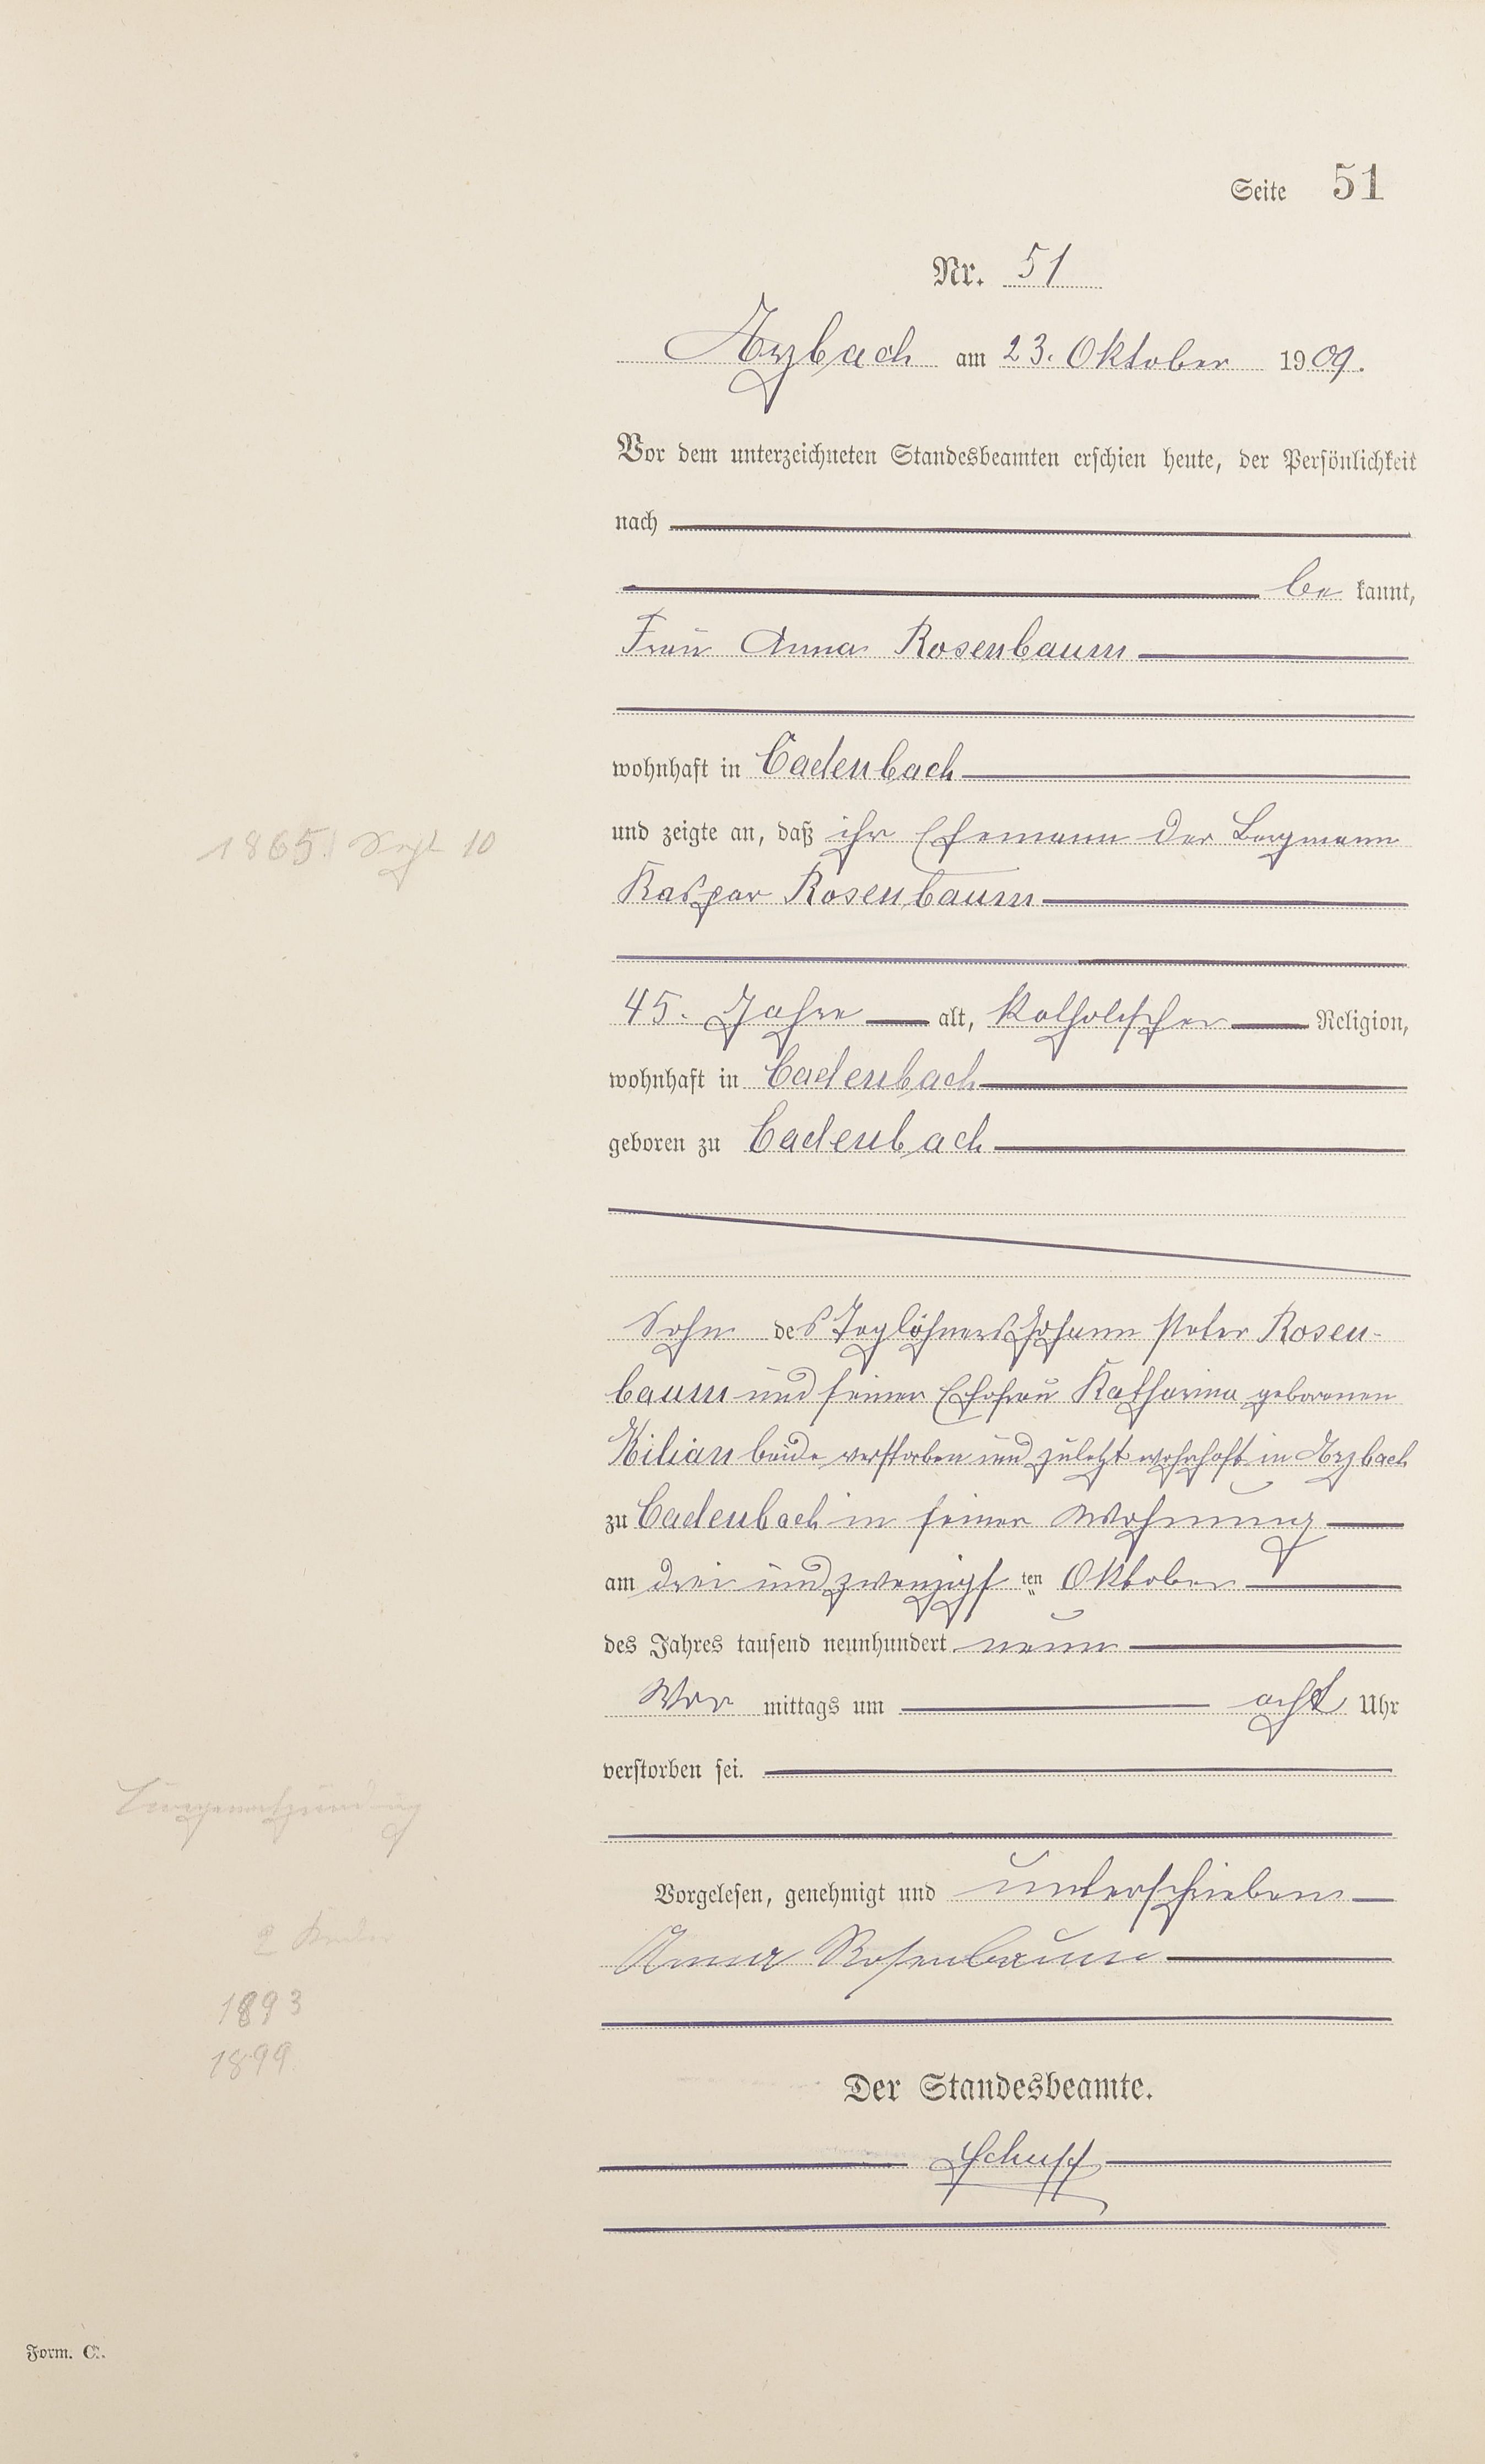 Seite 51
Nr. 51
Arzbach am 23. Oktober 1909.
Vor dem unterzeichneten Standesbeamten erschien heute, der Persönlichkeit
nach
be kannt,
Frau Anna Rosenbaum
wohnhaft in Cadenbach
und zeigte an, daß ihr Ehemann der Bergmann
1865. Sept 10
Kaspar Rosenbaum
45. Jahre alt, katholischer Religion,
wohnhaft in Cadenbach
geboren zu Cadenbach
Sohn des Taglöhners Johann Peter Rosen-
baum und seiner Ehefrau Katharina geborenen
Kilian beide verstorben und zuletzt wohnhaft in Arzbach
zu Cadenbach in seiner Wohnung
am drei und zwanzigs ten Oktober
des Jahres tausend neunhundert neun
Vor mittags um acht Uhr
verstorben sei.
Lungenentzündung
Vorgelesen, genehmigt und unterschrieben
2 Kinder
Anna Rosenbaum
1893
1899
Der Standesbeamte.
Form. C.